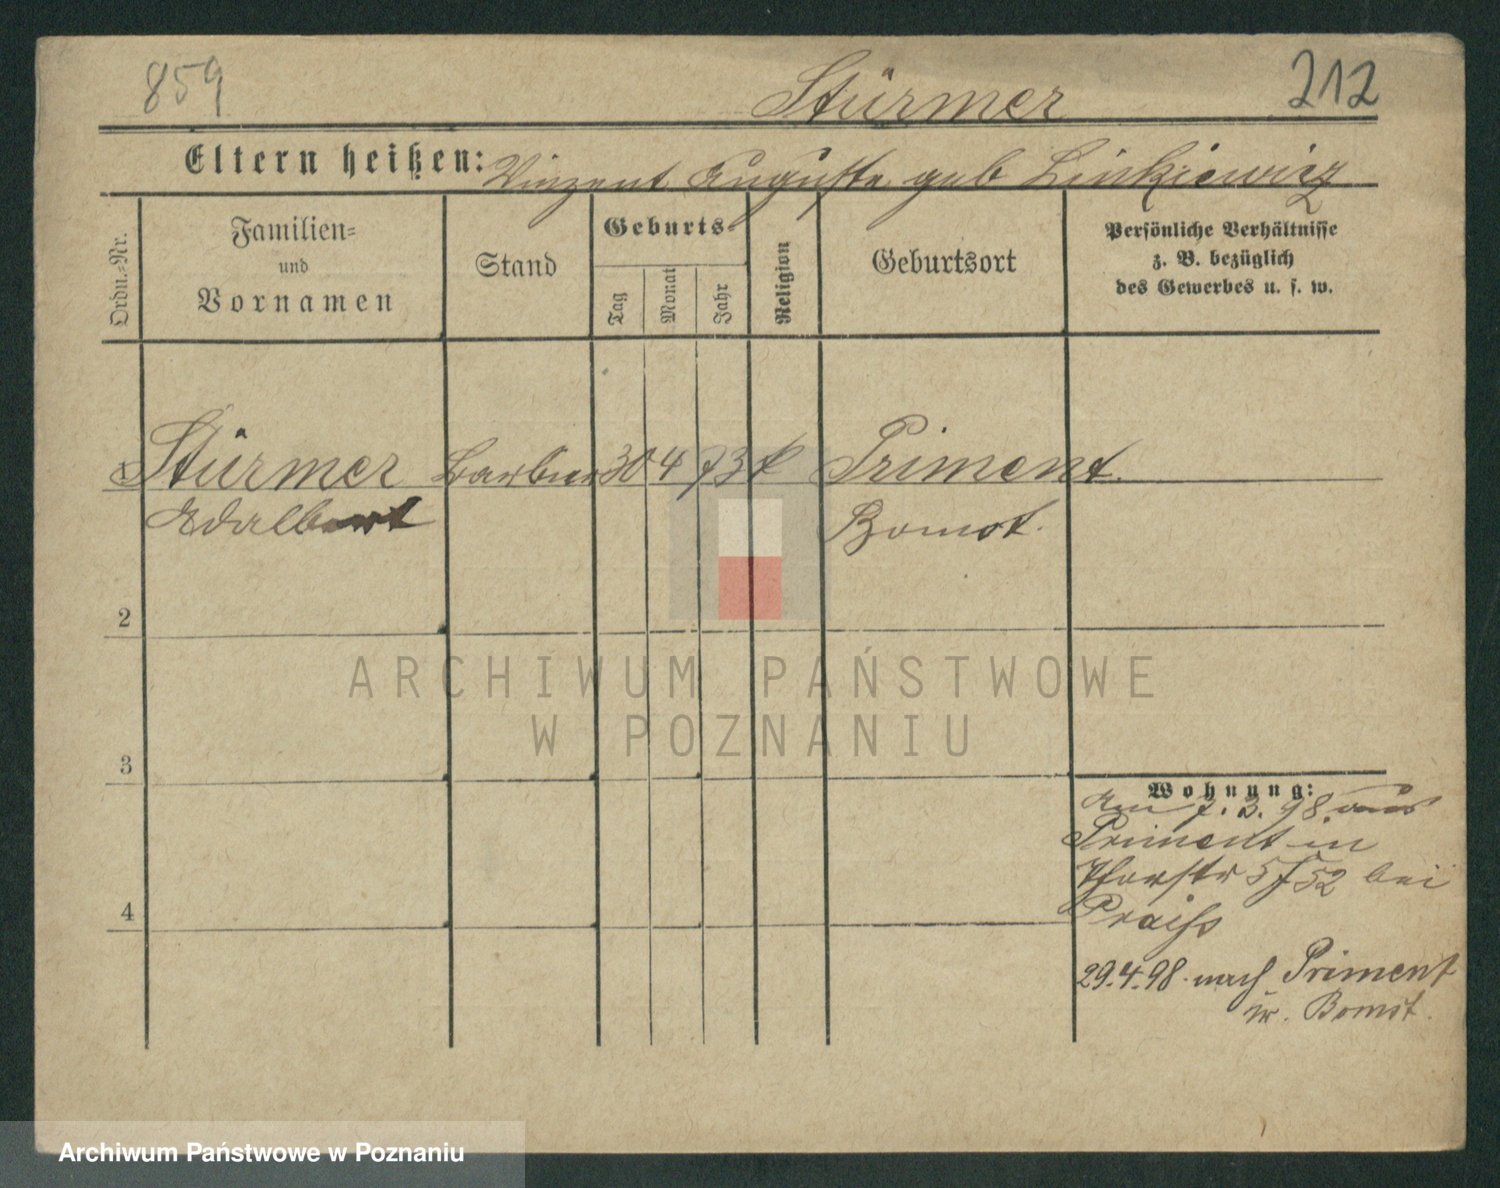 859
Stürmer
212
Eltern heißen: Vinzent Auguste geb Linkiewicz
Ordn.-Nr.
Familien-
und
Vornamen
Stand
Geburts-
Tag
Monat
Jahr
Religion
Geburtsort
Persönliche Verhältnisse
z. B. bezüglich
des Gewerbes u. s. w.
1 Stürmer Barbier 30 4 73 k Priment
Adalbert Bomst.
2
ARCHIWUM PAŃSTWOWE
W POZNANIU
3
Wohnung:
Am 7. 3. 98. aus
Priment in
5/52 bei
4
29.4.98. nach Priment
Kr. Bomst.
Archiwum Państwowe w Poznaniu